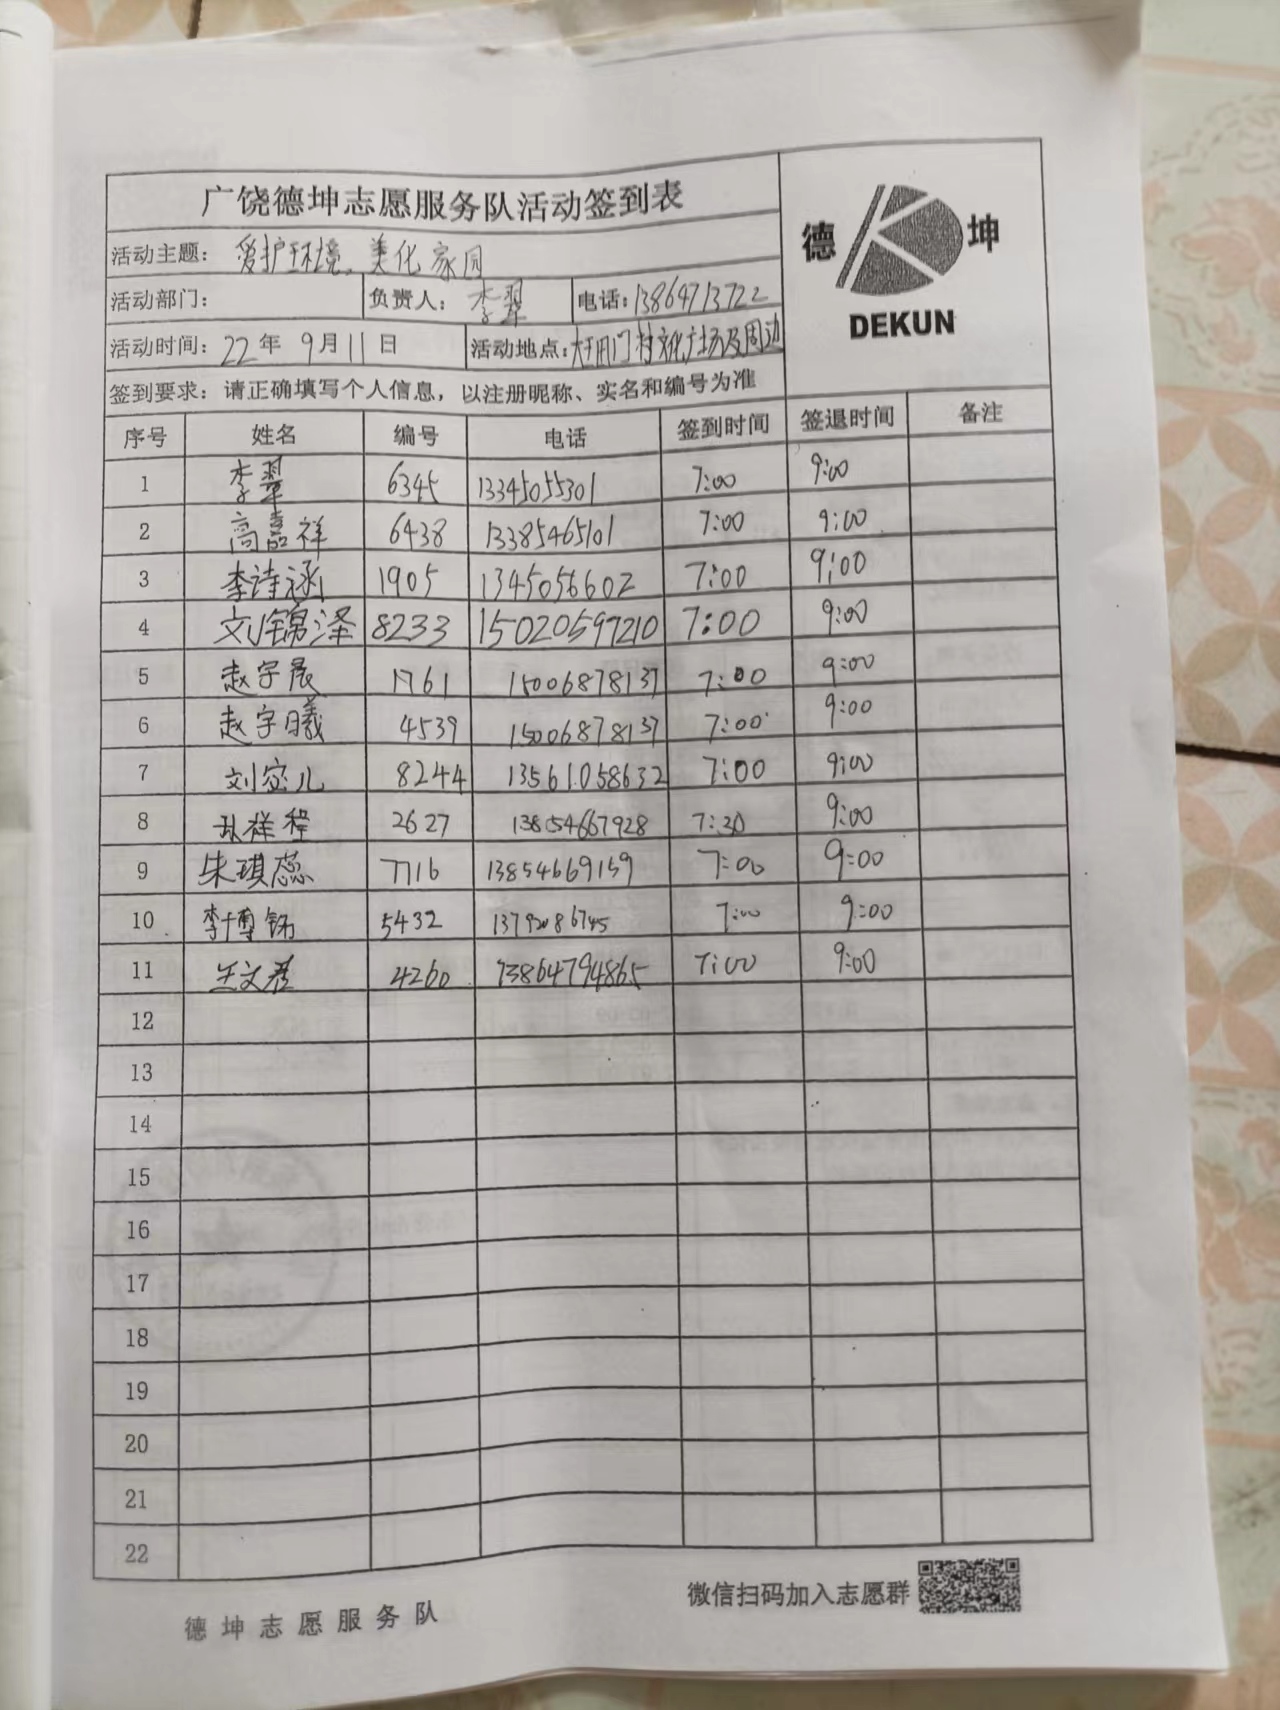 广饶德坤志愿服务队活动签到表
德 坤
DEKUN
活动主题：爱护环境、美化家园
活动部门： 负责人：李翠 电话：13864713722
活动时间：22年 9月11日 活动地点：大王西门村文化广场及周边
签到要求：请正确填写个人信息，以注册昵称、实名和编号为准
序号 姓名 编号 电话 签到时间 签退时间 备注
1 李翠 6345 13345055301 7:00 9:00
2 高嘉祥 6438 13385465101 7:00 9:00
3 李诗涵 1905 1345056602 7:00 9:00
4 刘锦泽 8233 15020597210 7:00 9:00
5 赵宇晨 1761 15006878137 7:00 9:00
6 赵宇曦 4539 15006878137 7:00 9:00
7 刘容儿 8244 13561058632 7:00 9:00
8 祥程 2627 13854667928 7:30 9:00
9 朱琪蕊 7716 13854669159 7:00 9:00
10 李博 5432 13792086745 7:00 9:00
11 王文 4260 13864794865 7:00 9:00
12
13
14
15
16
17
18
19
20
21
22
德坤志愿服务队
微信扫码加入志愿群